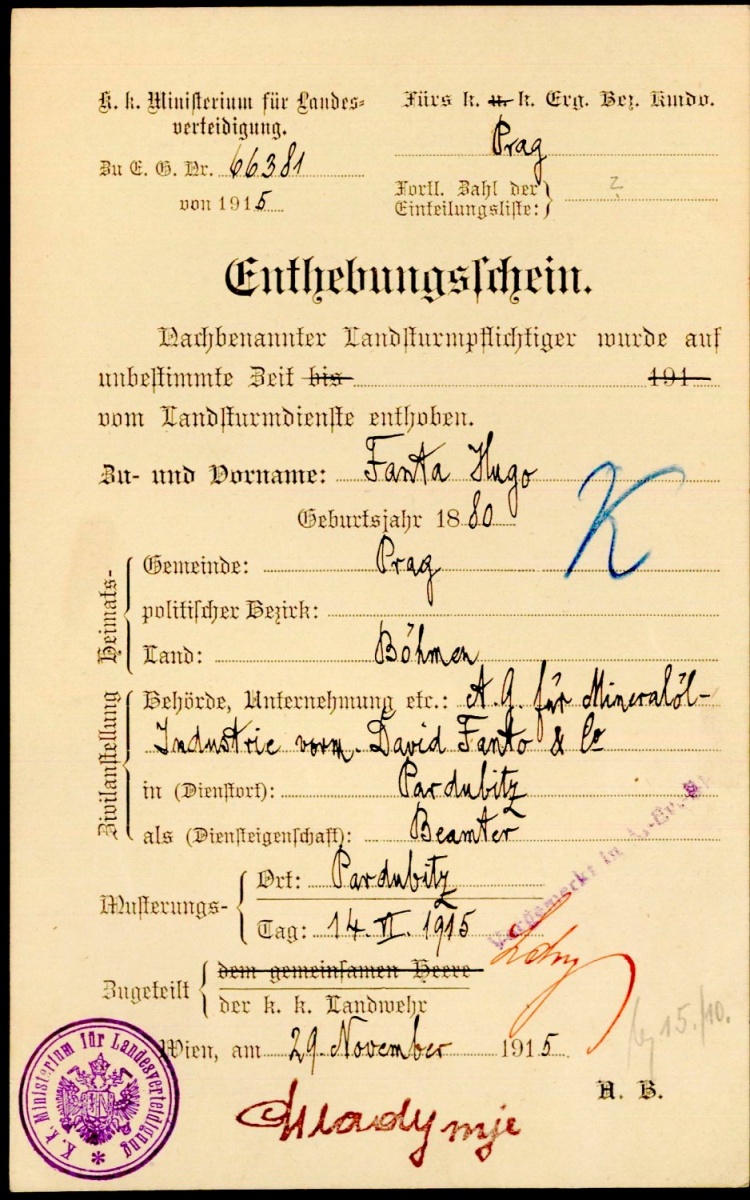 K. k. Ministerium für Landes-
verteidigung.
Zu E. G. Nr. 66381
von 1915
Fürs k. u. k. Erg. Bez. Kmdo.
Prag
Fortl. Zahl der
Einteilungsliste: ?
Enthebungsschein.
Nachbenannter Landsturmpflichtiger wurde auf
unbestimmte Zeit bis 191
vom Landsturmdienste enthoben.
Zu- und Vorname: Fanta Hugo
Geburtsjahr 1880
K
Heimats-
Gemeinde: Prag
politischer Bezirk:
Land: Böhmen
Zivilanstellung
Behörde, Unternehmung etc.: A. G. für Mineralöl-
Industrie vorm. David Fanto & Co
in (Dienstort): Pardubitz
als (Diensteigenschaft): Beamter
Musterungs-
Ort: Pardubitz
Tag: 14. VI. 1915
Vorgemerkt in
Zugeteilt
dem gemeinsamen Heere
der k. k. Landwehr
Wien, am 29. November 1915.
15./10.
H. B.
K. k. Ministerium für Landesverteidigung